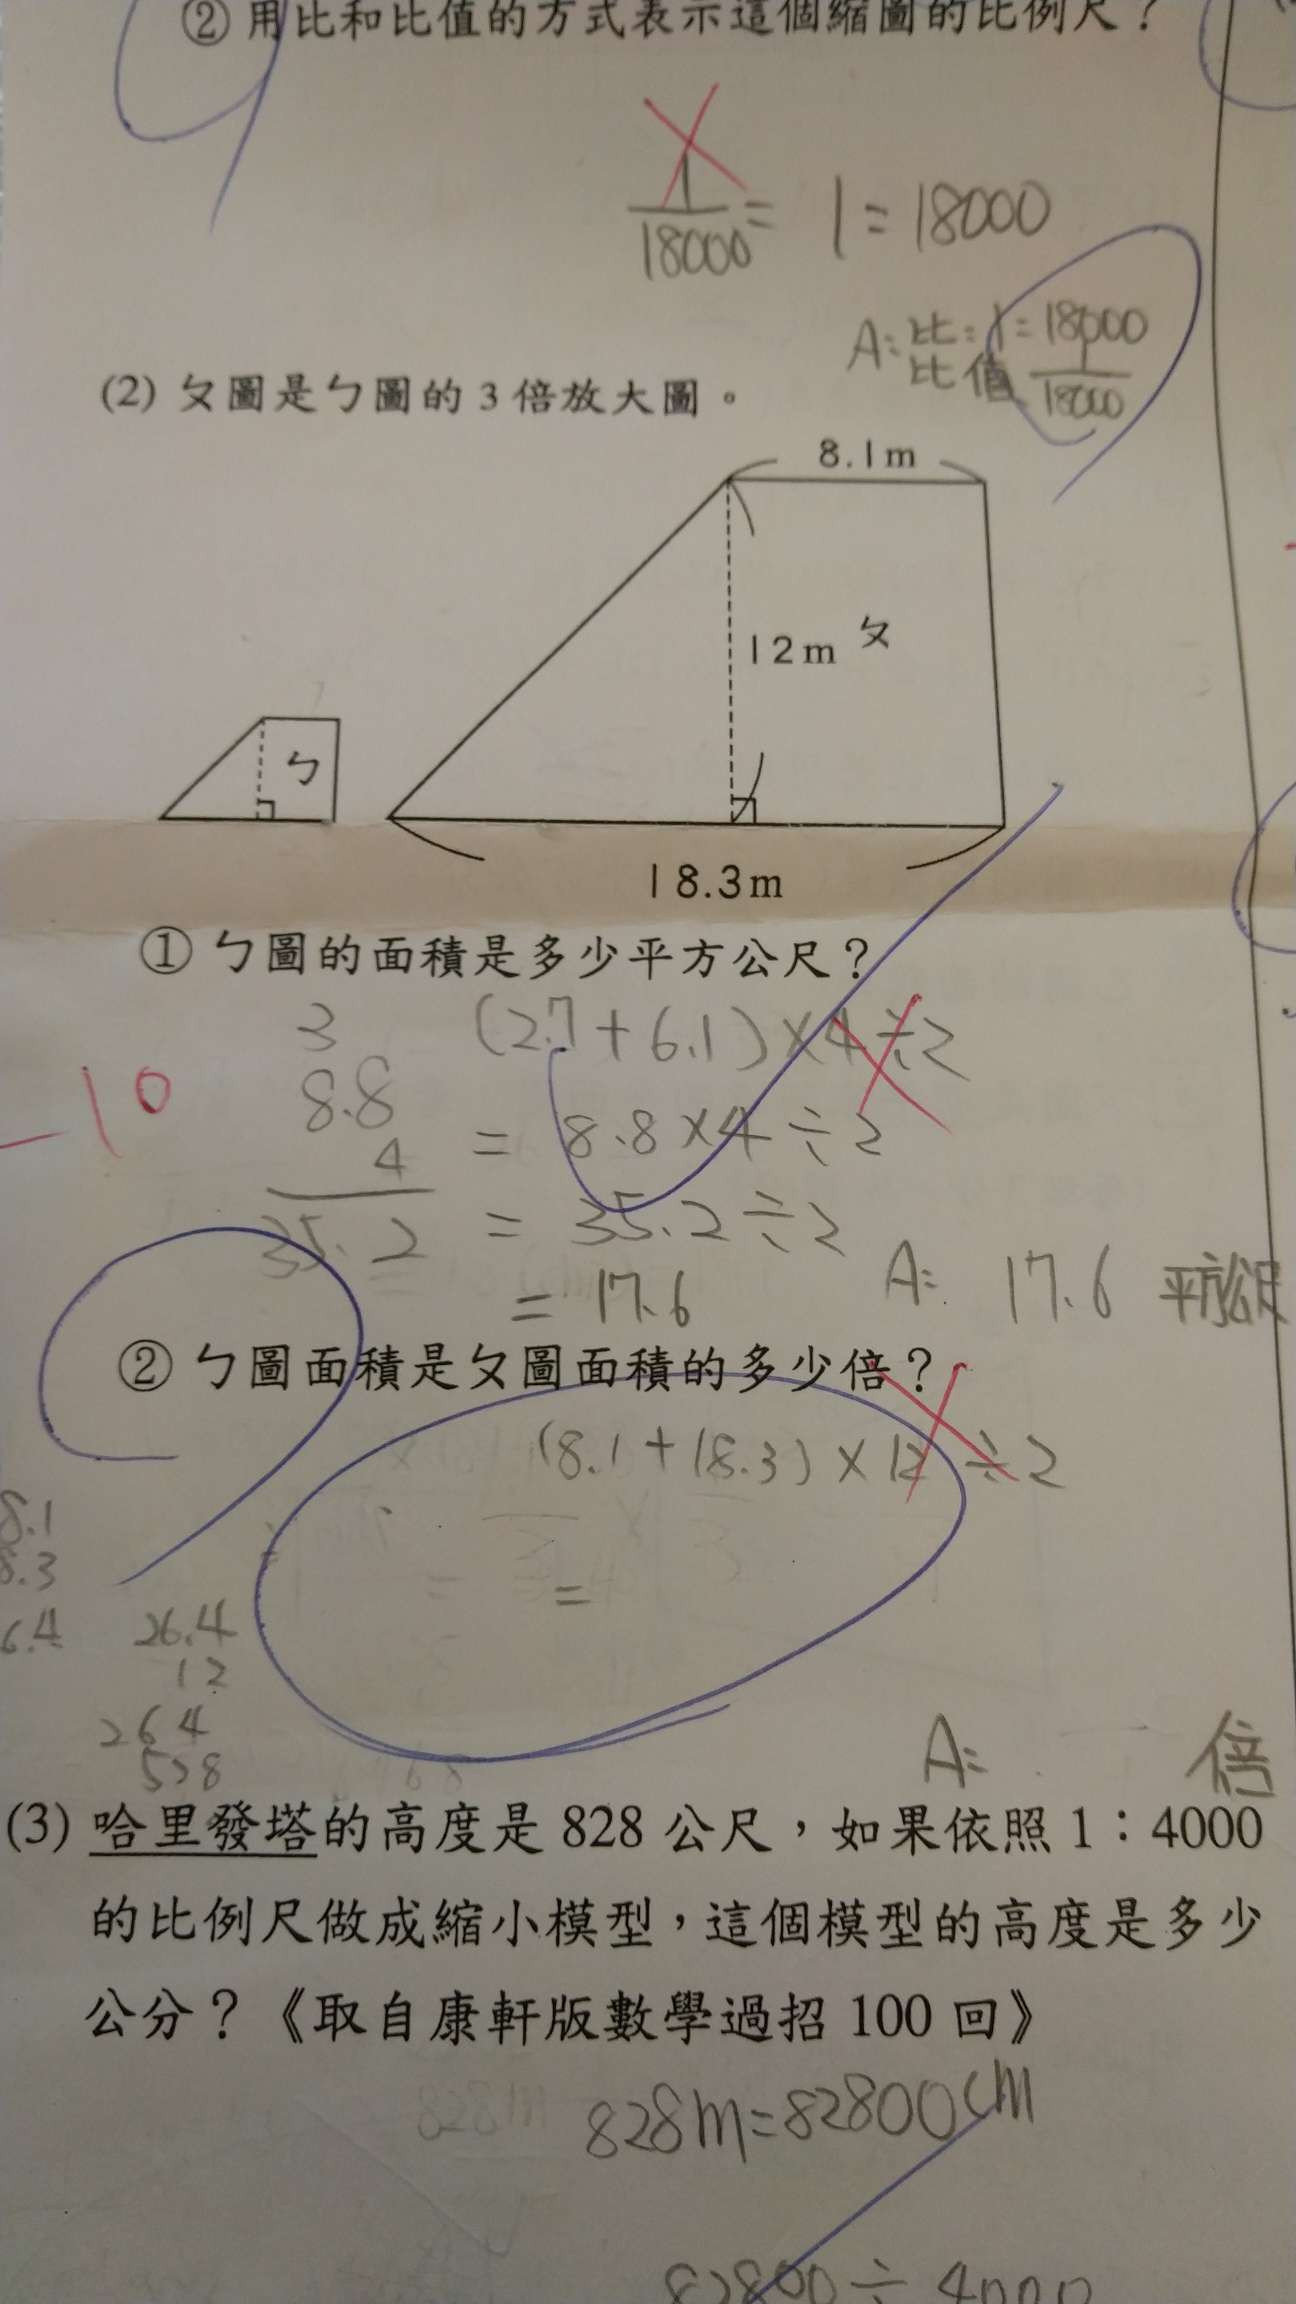 ② 用比和比值的方式表示這個縮圖的比例尺？
1/18000 = 1=18000
A: 比: 1=18000
比值 1/18000
(2) ㄆ圖是ㄅ圖的 3 倍放大圖。
8.1m
12m ㄆ
ㄅ
18.3m
① ㄅ圖的面積是多少平方公尺？
3 (2.7+6.1)×4÷2
-10
8.8
4 = 8.8×4÷2
35.2 = 35.2÷2
= 17.6 A: 17.6 平方公尺
② ㄅ圖面積是ㄆ圖面積的多少倍？
(8.1+18.3)×12÷2
8.1
8.3
6.4 26.4 =
12
264
528
A: 倍
(3) 哈里發塔的高度是 828 公尺，如果依照 1：4000
的比例尺做成縮小模型，這個模型的高度是多少
公分？《取自康軒版數學過招 100 回》
828m=82800cm
82800÷4000